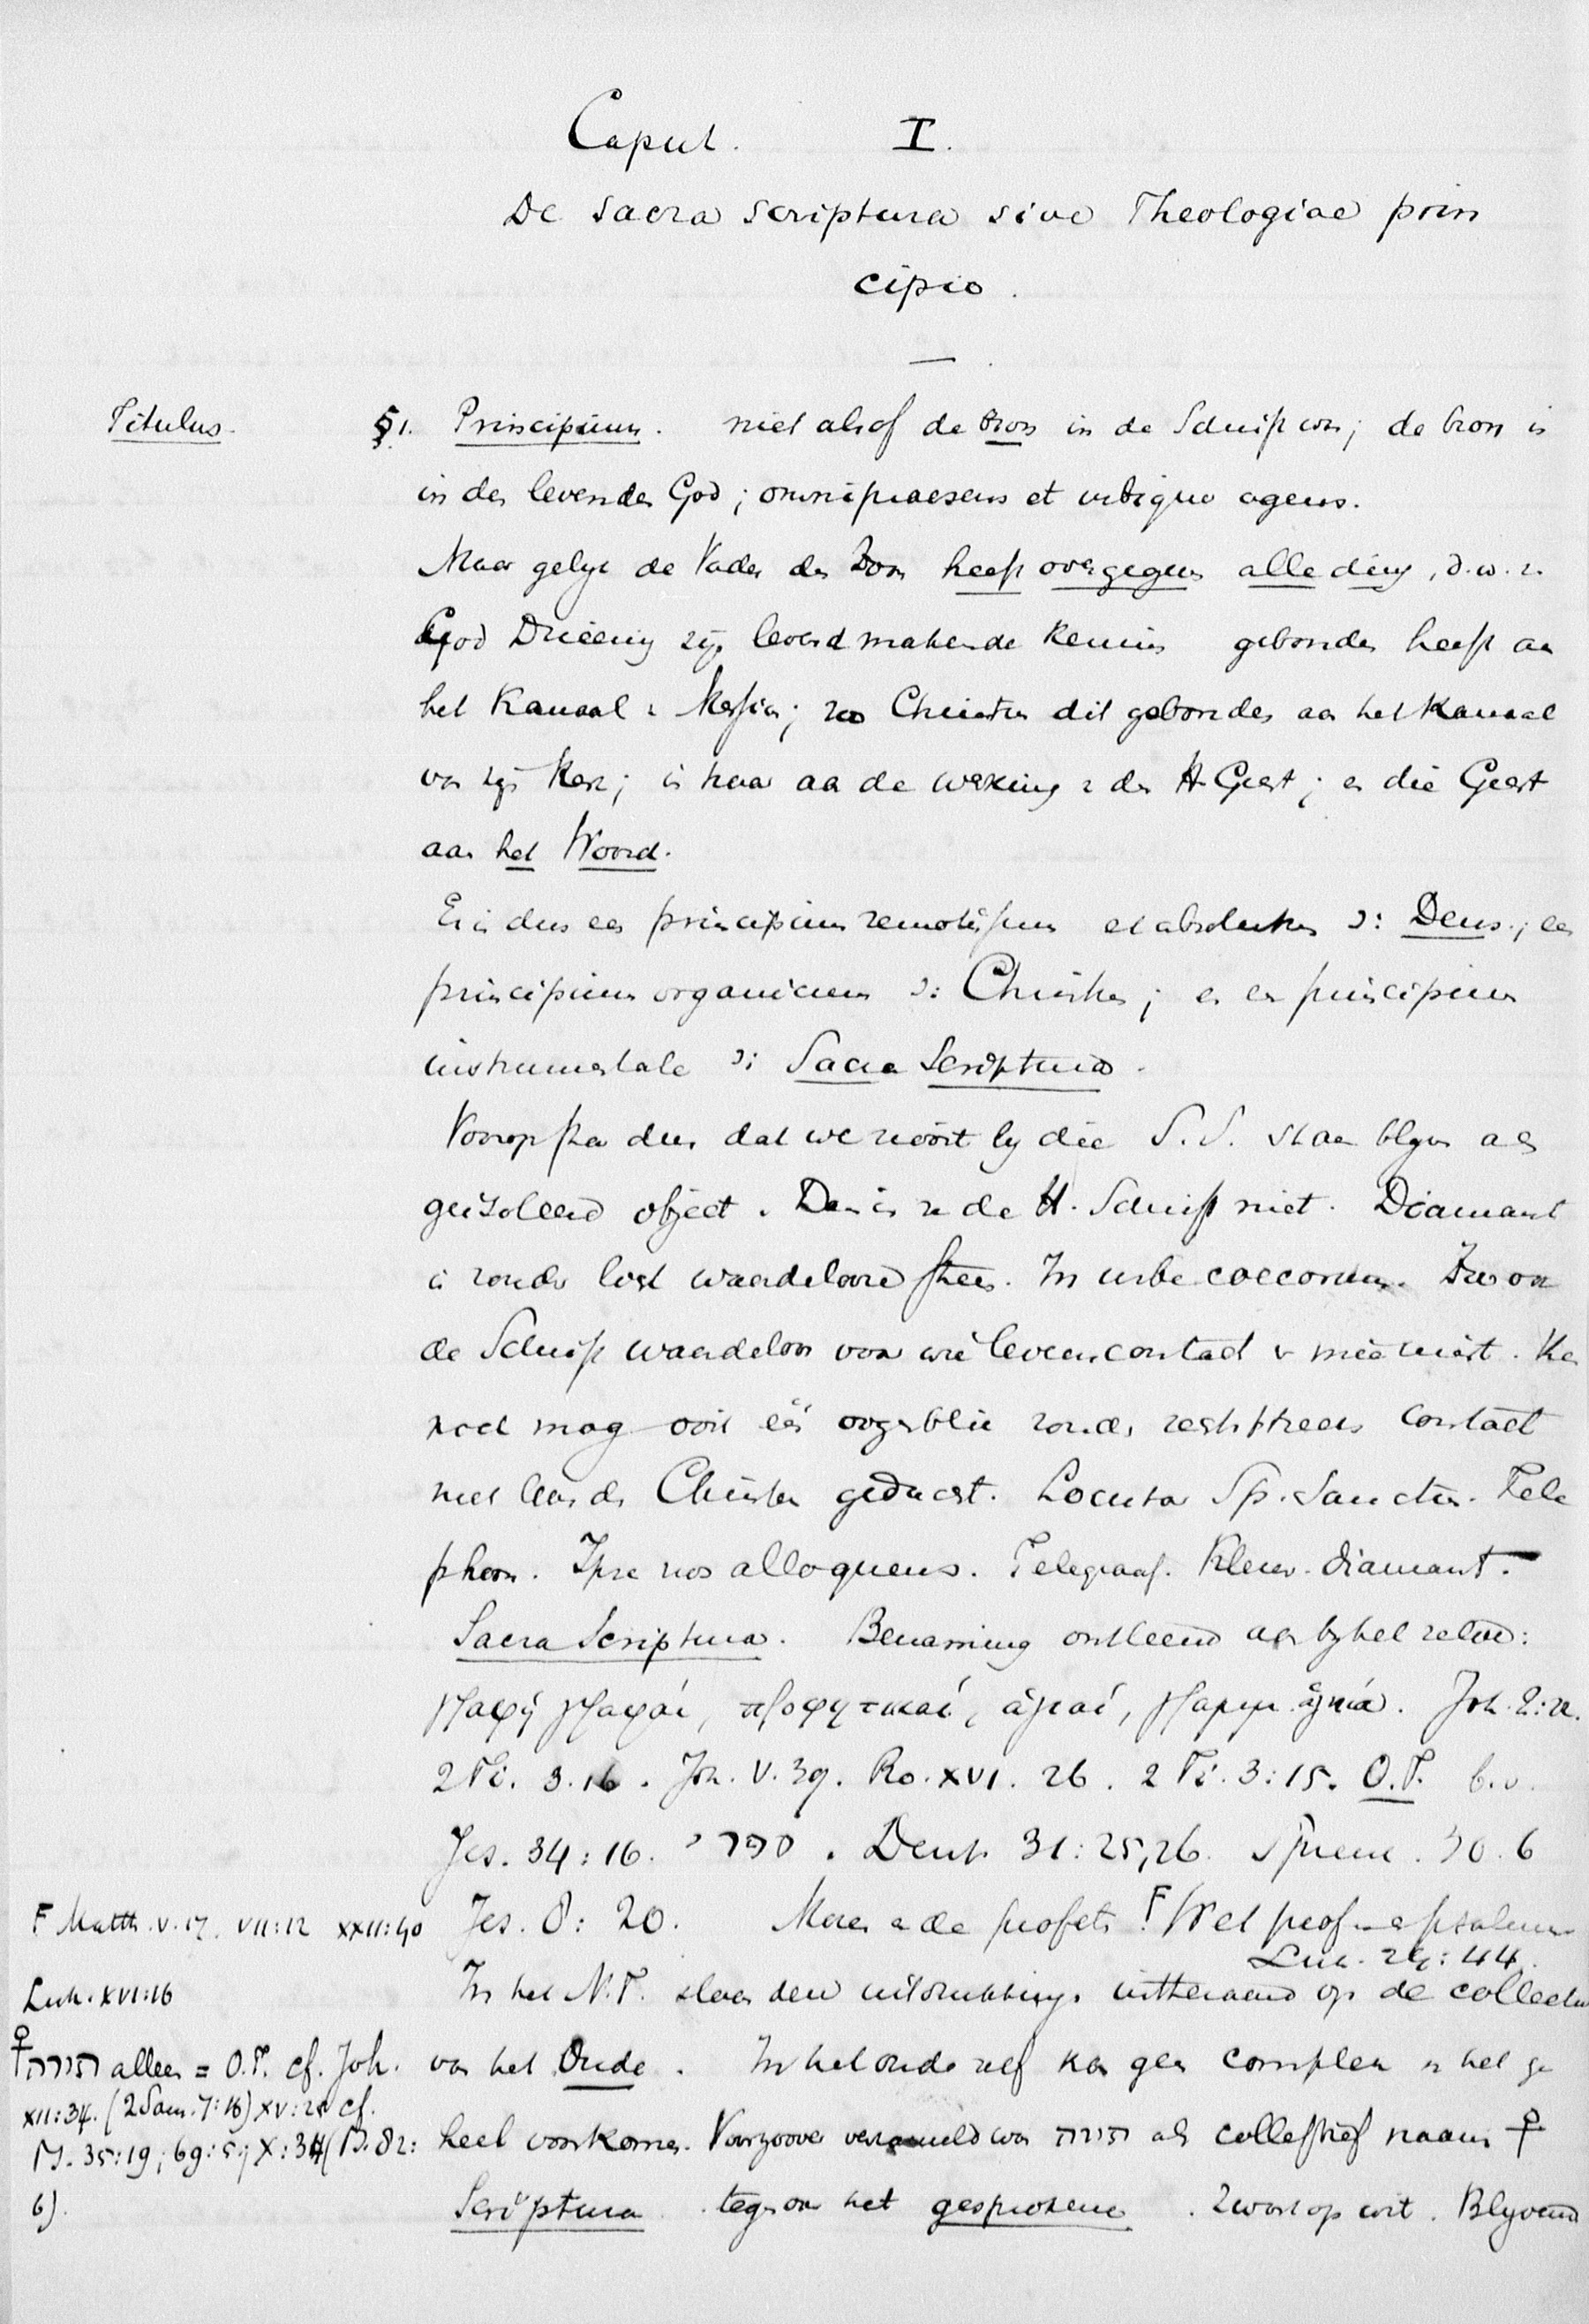 Caput. I.
De Sacra Scriptura sive Theologiae prin
cipio.
Titulus. § 1. Principium. niet alsof de bron in de Schrift was; de bron is
in den levenden God; omnipraesens et ubique agens.
Maar gelijk de Vader den Zoon heeft overgegeven alle ding, d.w.z.
God Drieenig zijn levendmakende kennis gebonden heeft aan
het Kanaal v Messias; zoo Christus dit gebonden aan het Kanaal
van zijn Kerk; in haar aan de werking v den H. Geest; en die Geest
aan het Woord.
Er is dus een principium remotissimum et absolutum ɔ: Deus.; een
principium organicum ɔ: Christus; en een principium
instrumentale ɔ: Sacra Scriptura.
Voorop sta dus dat we nooit bij die S.S. staan blijven als
geisoleerd object. Dan is ze de H. Schrift niet. Diamant
is zonder licht waardeloose steen. In urbe caecorum. Zoo ook
de Schrift waardeloos voor wie levenscontact er mee mist. Ze
mag ooit één oogenblik zonder rechtstreeks contact
met den Christus gedacht. Locuta Sp. Sanctus. Tele
phoon. Ipse nos alloquens. Telegraaf. Kleur. diamant.
Sacra Scriptura. Benaming ontleend aan bijbel zelve:
γραφή γραφαί, προφητικαί, ἁγιαί, γραμμ. ἱερά. Joh. 2:22.
2 Ti. 3.16. Joh. V. 39. Ro. XVI. 26. 2 Ti. 3:15. O.T. b.v.
Jes. 34:16. ספר י. Deut. 31:25,26. Spreuk. 30.6
F Matth. V. 17. VII:12 XXII:40 Jes. 8:20. Mozes en de profeten F Wet prof. en psalmen
Luk. 24:44.
Luk. XVI:16 In het N.T. slaan deze uitdrukkingen uitsluitend op de collectie
♀ תורה alleen = O.T. cf. Joh. van het Oude. In het oude zelf kan geen complex in het ge
XII:34. (2 Sam. 7:16) XV:25 cf.
Ps. 35:19; 69:5; X:34 (Ps. 82: heel voorkomen. Voorzoover verzameld was תורה als collectief naam ♀
6). Scriptura tegenover het gesprokene. Zwart op wit. Blijvend